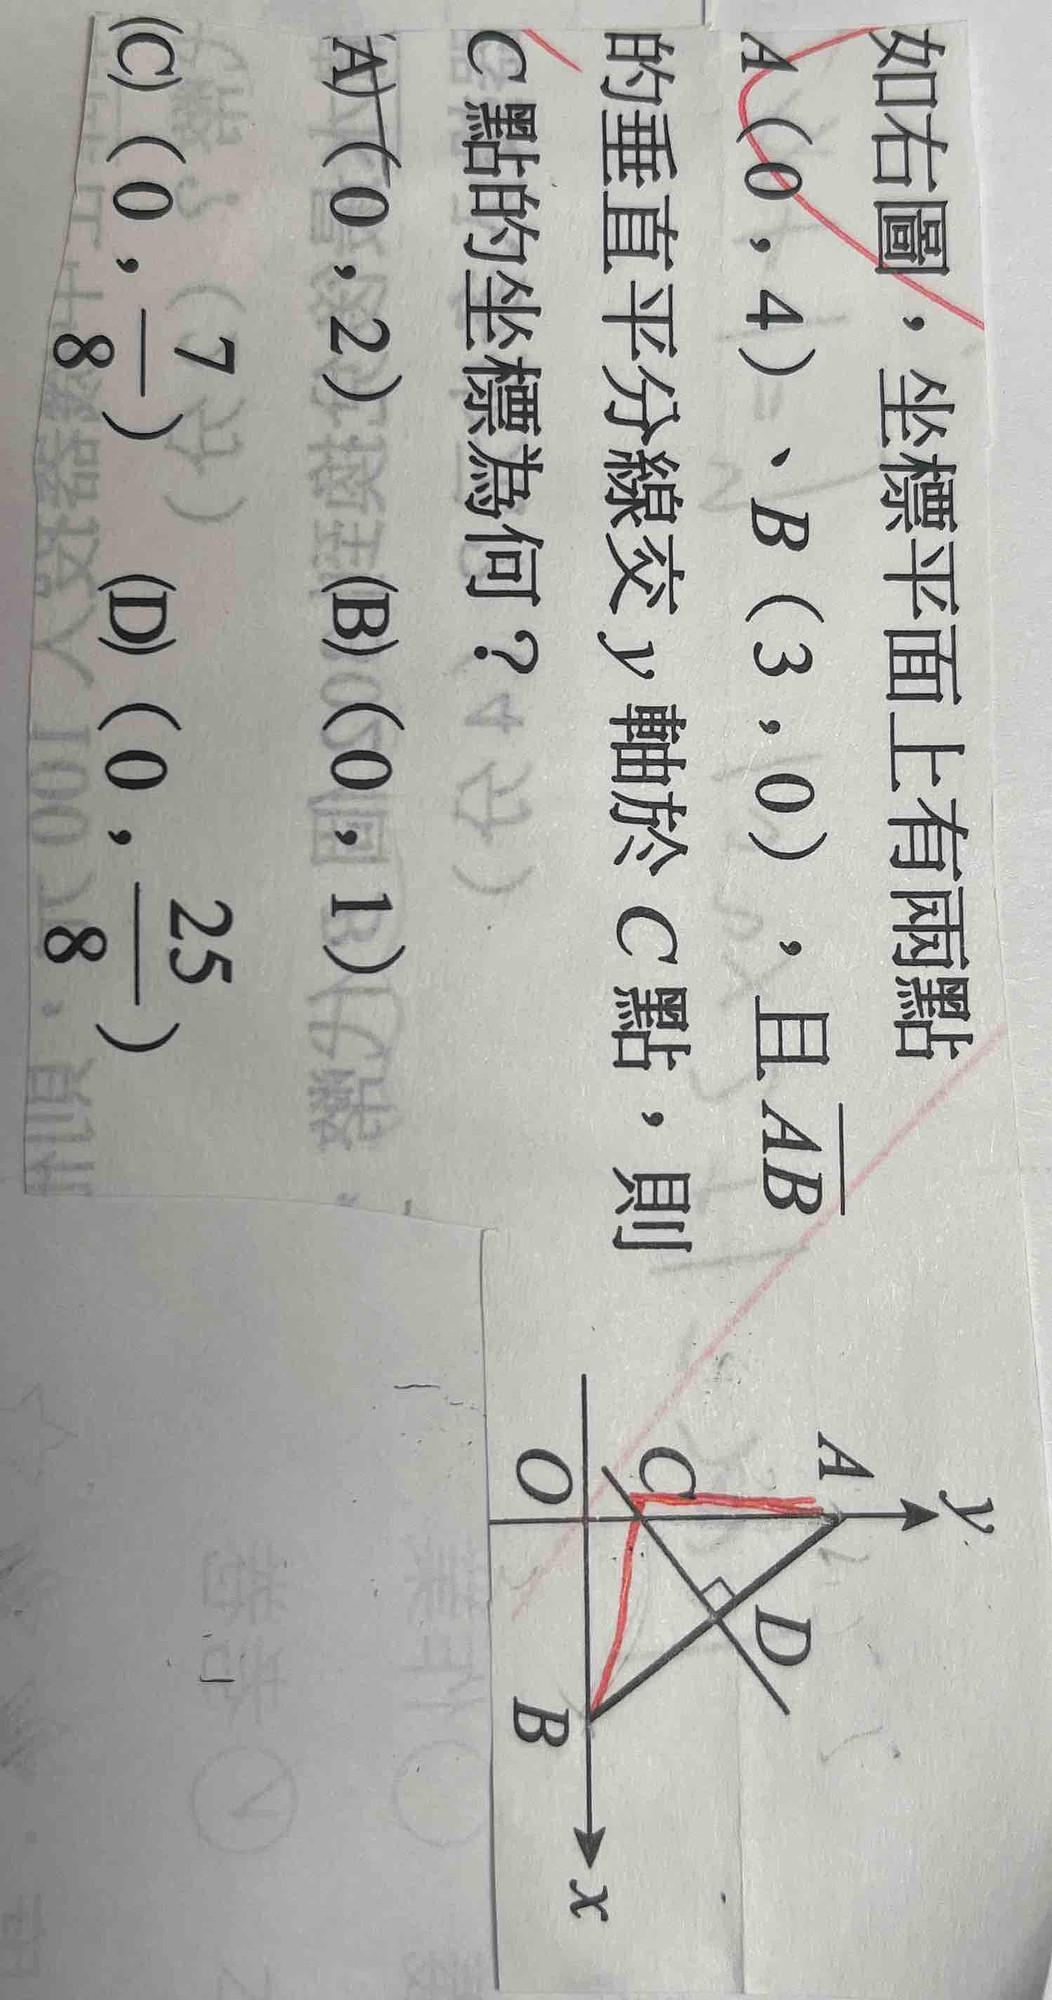 如右圖，坐標平面上有兩點
A（0，4）、B（3，0），且AB
的垂直平分線交 y 軸於 C 點，則
C 點的坐標為何？
(A)（0，2） (B)（0，1）
(C)（0，7/8） (D)（0，25/8）
y
A
D
C
O
B
x